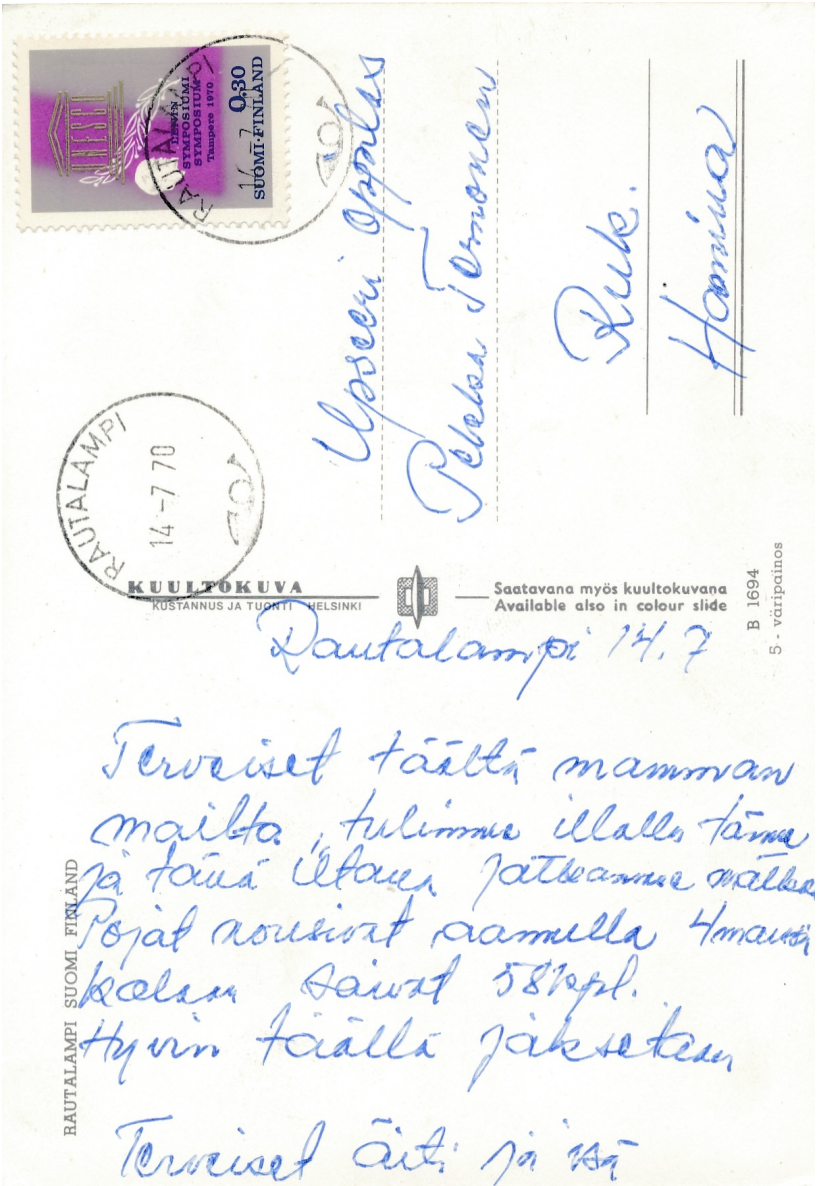 UNESCO
LENIN
SYMPOSIUMI
SYMPOSIUM
Tampere 1970
0,30
SUOMI-FINLAND
RAUTALAMPI
14 -7
RAUTALAMPI
14 -7 70
Upseeri oppilas
Pekka Termonen
Ruk.
Hamina
KUULTOKUVA
KUSTANNUS JA TUONTI HELSINKI
Saatavana myös kuultokuvana
Available also in colour slide
B 1694
5 - väripainos
RAUTALAMPI SUOMI FINLAND
Rautalampi 14.7
Terveiset täältä mamman
mailta, tulimme illalla tänne
ja tänä iltana jatkamme matkaa
Pojat nousivat aamulla 4mansä
kalaan saivat 58kpl.
Hyvin täällä jaksetaan
Terveiset äiti ja isä